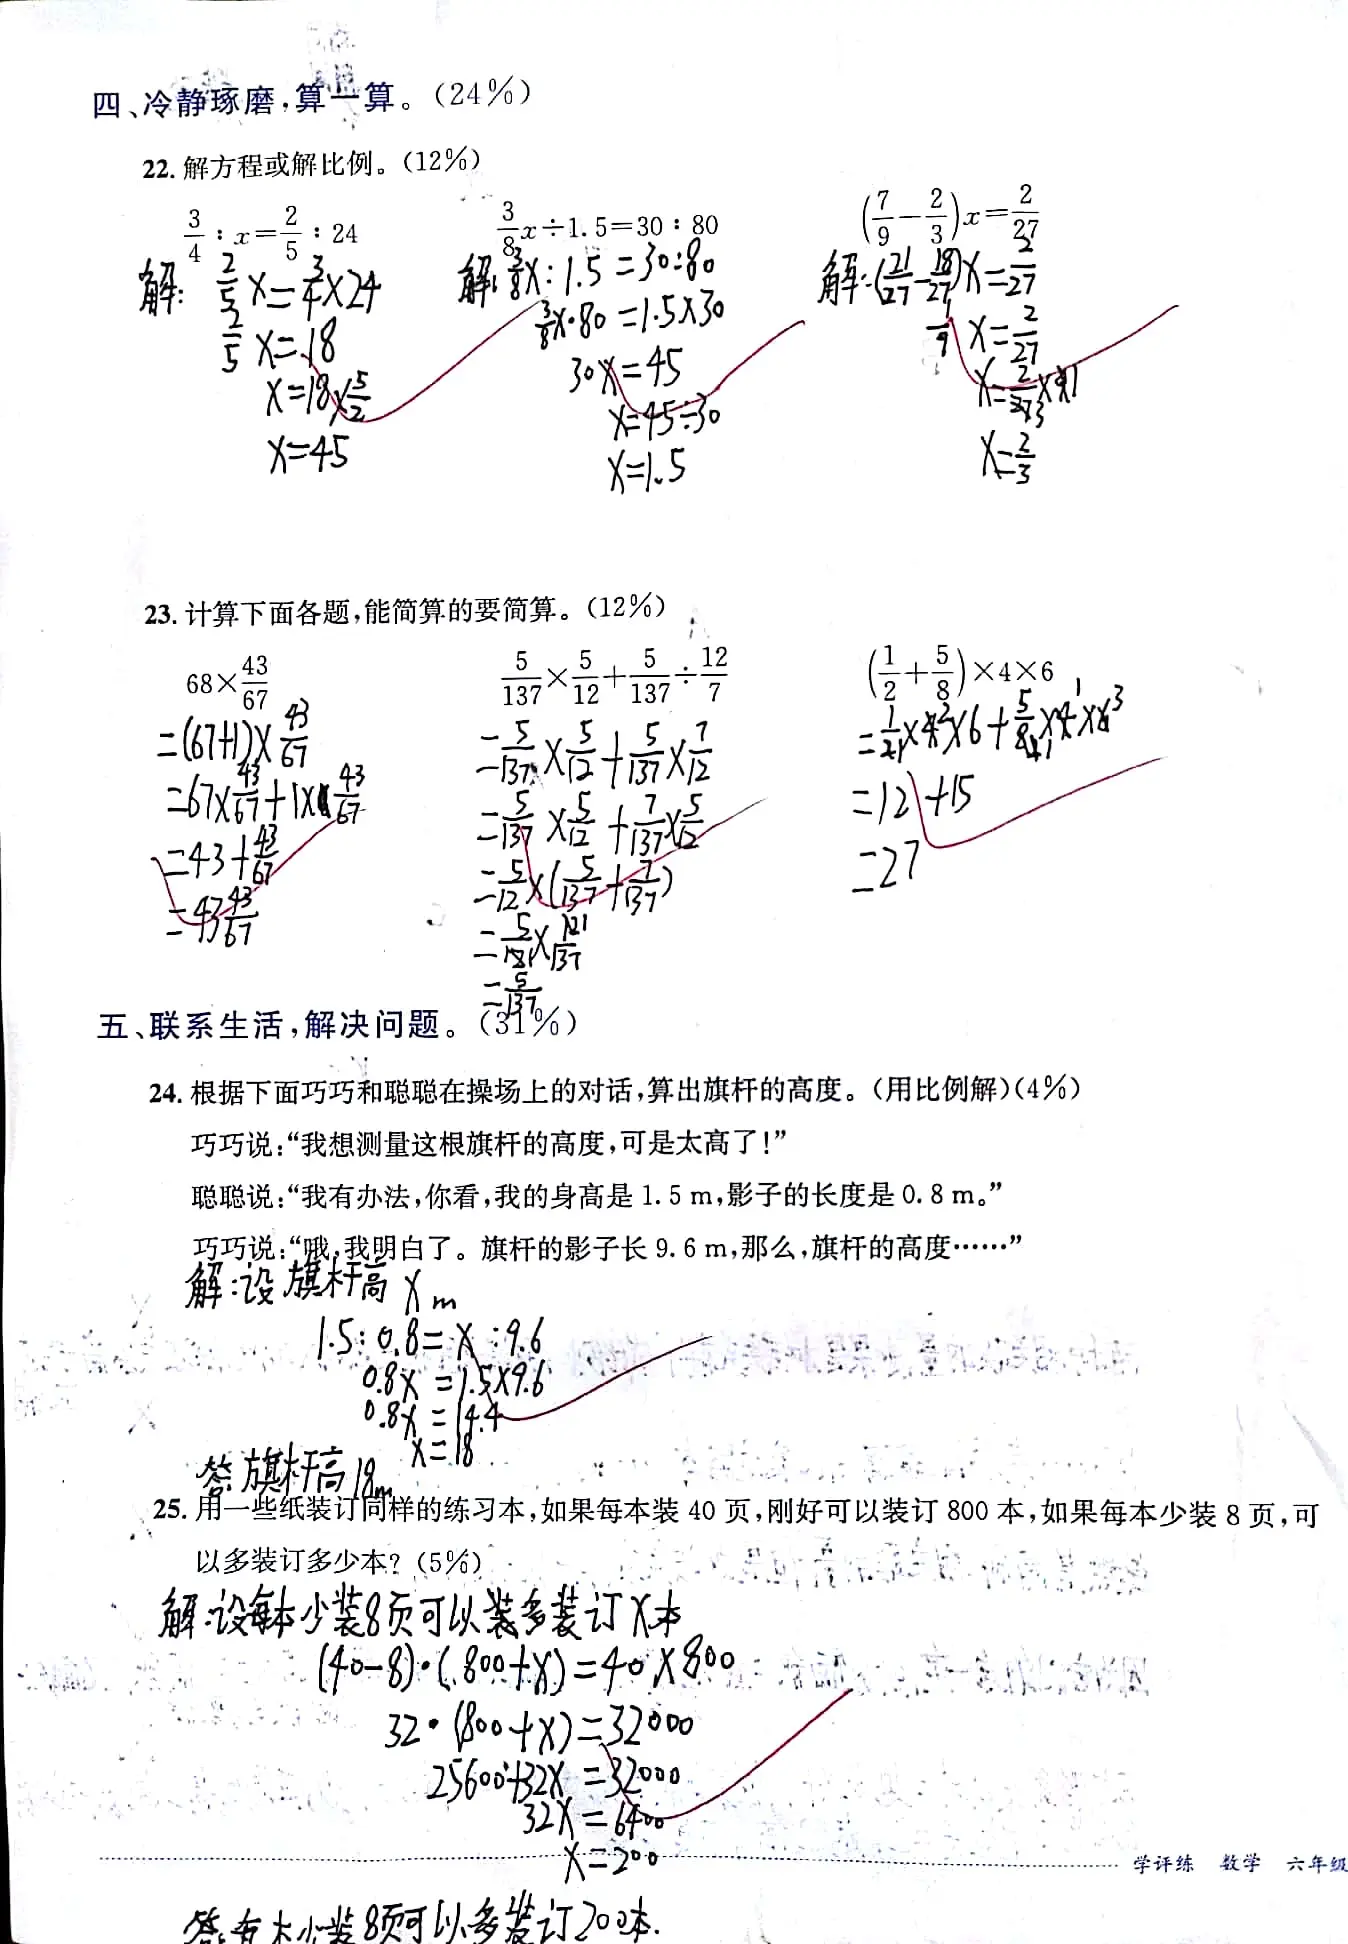 四、冷静琢磨,算一算。(24%)
22. 解方程或解比例。(12%)
3/4 : x = 2/5 : 24
解: 2/5 x = 3/4 × 24
2/5 x = 18
x = 18 × 5/2
x = 45
3/8 x ÷ 1.5 = 30 : 80
解: 3/8 x : 1.5 = 30 : 80
3/8 x · 80 = 1.5 × 30
30x = 45
x = 45 ÷ 30
x = 1.5
(7/9 − 2/3) x = 2/27
解: (21/27 − 18/27) x = 2/27
1/9 x = 2/27
x = 2/27 × 9
x = 2/3
23. 计算下面各题,能简算的要简算。(12%)
68 × 43/67
= (67+1) × 43/67
= 67 × 43/67 + 1 × 43/67
= 43 + 43/67
= 43 43/67
5/137 × 5/12 + 5/137 ÷ 12/7
= 5/137 × 5/12 + 5/137 × 7/12
= 5/137 × 5/12 + 7/137 × 5/12
= 5/12 × (5/137 + 7/137)
= 5/12 × 12/137
= 5/137
(1/2 + 5/8) × 4 × 6
= 1/2 × 4 × 6 + 5/8 × 4 × 6
= 12 + 15
= 27
五、联系生活,解决问题。(31%)
24. 根据下面巧巧和聪聪在操场上的对话,算出旗杆的高度。(用比例解)(4%)
巧巧说:“我想测量这根旗杆的高度,可是太高了!”
聪聪说:“我有办法,你看,我的身高是 1.5 m,影子的长度是 0.8 m。”
巧巧说:“哦,我明白了。旗杆的影子长 9.6 m,那么,旗杆的高度……”
解:设旗杆高 x m
1.5 : 0.8 = x : 9.6
0.8x = 1.5×9.6
0.8x = 14.4
x = 18
答:旗杆高18m
25. 用一些纸装订同样的练习本,如果每本装 40 页,刚好可以装订 800 本,如果每本少装 8 页,可
以多装订多少本?(5%)
解:设每本少装8页可以装多装订x本
(40−8)·(800+x)=40×800
32·(800+x)=32000
25600+32x=32000
32x=6400
x=200
答:每本少装8页可以多装订200本.
学评练 数学 六年级